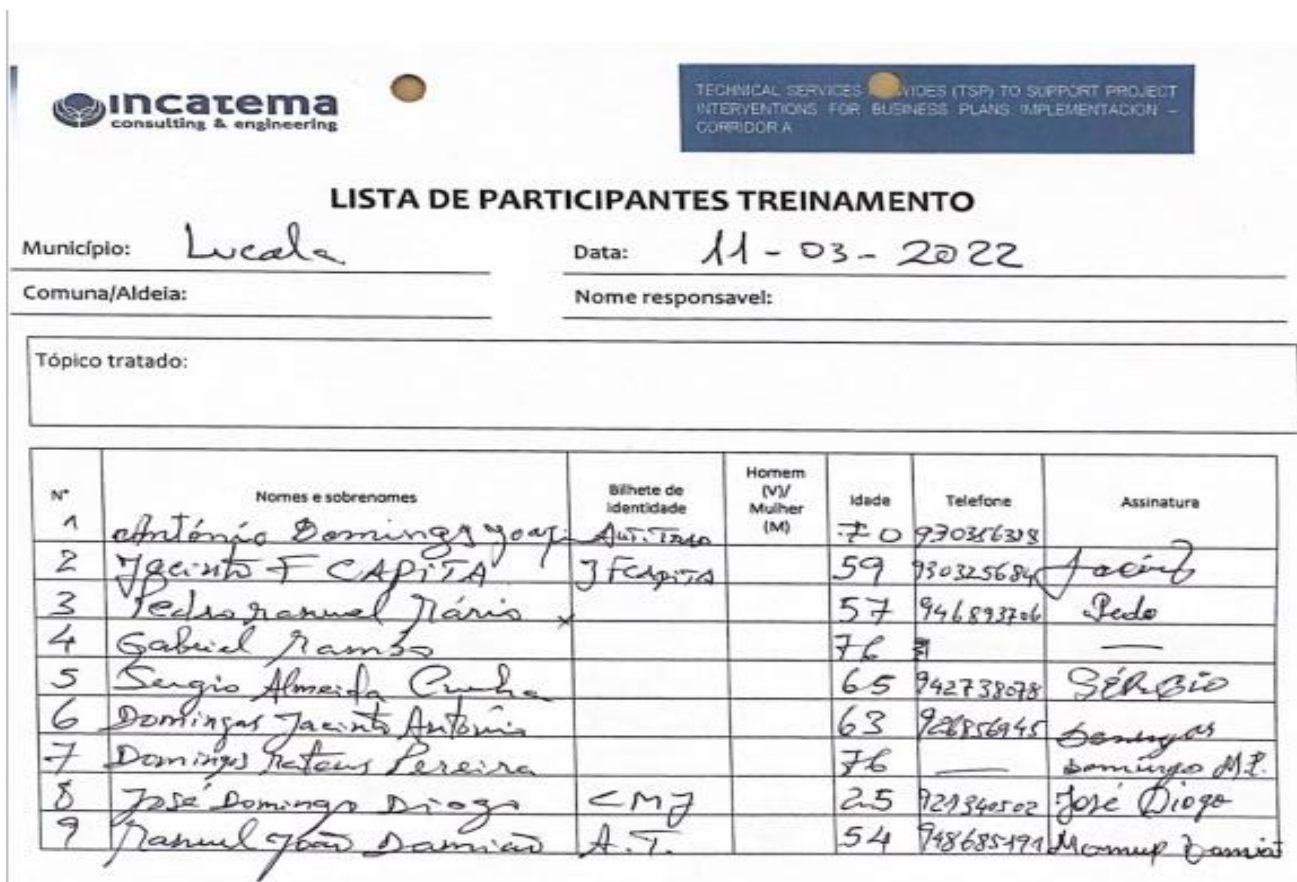 incatema
consulting & engineering
TECHNICAL SERVICES (TSP) TO SUPPORT PROJECT
INTERVENTIONS FOR BUSINESS PLANS IMPLEMENTACION –
CORRIDOR A
LISTA DE PARTICIPANTES TREINAMENTO
Município: Lucala Data: 11-03-2022
Comuna/Aldeia: Nome responsavel:
Tópico tratado:
N° Nomes e sobrenomes Bilhete de identidade Homem (V)/ Mulher (M) Idade Telefone Assinatura
1 António Domingos 70
2 Jacinto F CAPITA J F CAPITA 59 930325684 Jacinto
3 Pedro Manuel Mário x 57 946893706 Pedo
4 Gabriel 76 —
5 Sergio Almeida Cunha 65 942738078 SÉRGIO
6 Domingas Jacinto António 63 926856945 Domingas
7 Domingos Mateus Pereira 76 — Domingo M.P.
8 José Domingo Diogo CMJ 25 921340502 José Diogo
9 Manuel João Damião A.T. 54 948685191